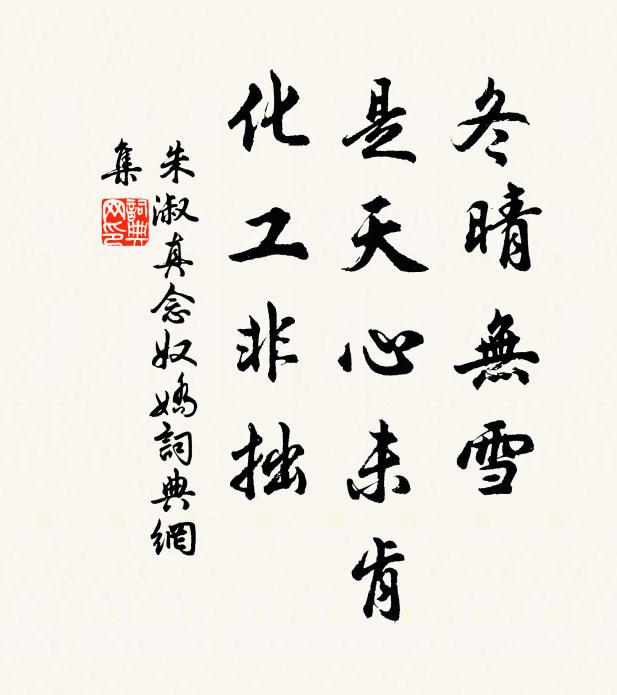 冬晴無雪
是天心未肯
化工非拙
朱淑真念奴嬌詞典網
集
詞典
网印